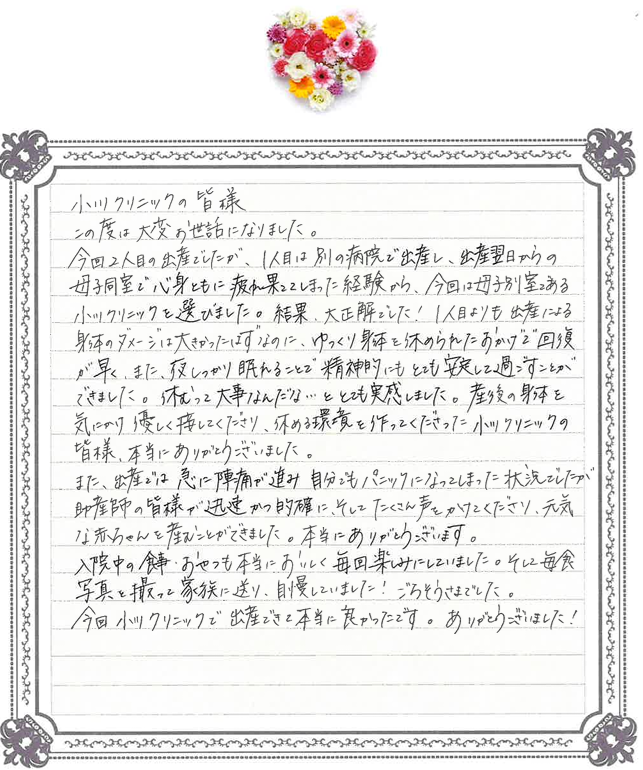 小川クリニックの皆様
この度は大変お世話になりました。
今回2人目の出産でしたが、1人目は別の病院で出産し、出産翌日からの
母子同室で心身ともに疲れ果ててしまった経験から、今回は母子別室である
小川クリニックを選びました。結果、大正解でした!1人目よりも出産による
身体のダメージは大きかったはずなのに、ゆっくり身体を休められたおかげで回復
が早く、また、夜しっかり眠れることで精神的にもとても安定して過ごすことが
できました。休むって大事なんだな…ととても実感しました。産後の身体を
気にかけ優しく接してくださり、休める環境を作ってくださった小川クリニックの
皆様、本当にありがとうございました。
また、出産では急に陣痛が進み自分でもパニックになってしまった状況でしたが
助産師の皆様が迅速かつ的確に、そしてたくさん声をかけてくださり、元気
な赤ちゃんを産むことができました。本当にありがとうございます。
入院中の食事・おやつも本当においしく毎回楽しみにしていました。そして毎食
写真を撮って家族に送り、自慢していました!ごちそうさまでした。
今回小川クリニックで出産できて本当に良かったです。ありがとうございました!